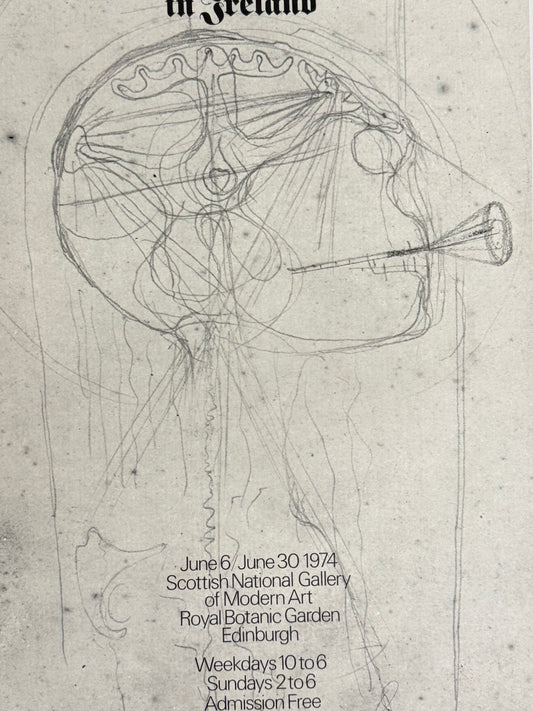 in Ireland
June 6/June 30 1974
Scottish National Gallery
of Modern Art
Royal Botanic Garden
Edinburgh
Weekdays 10 to 6
Sundays 2 to 6
Admission Free